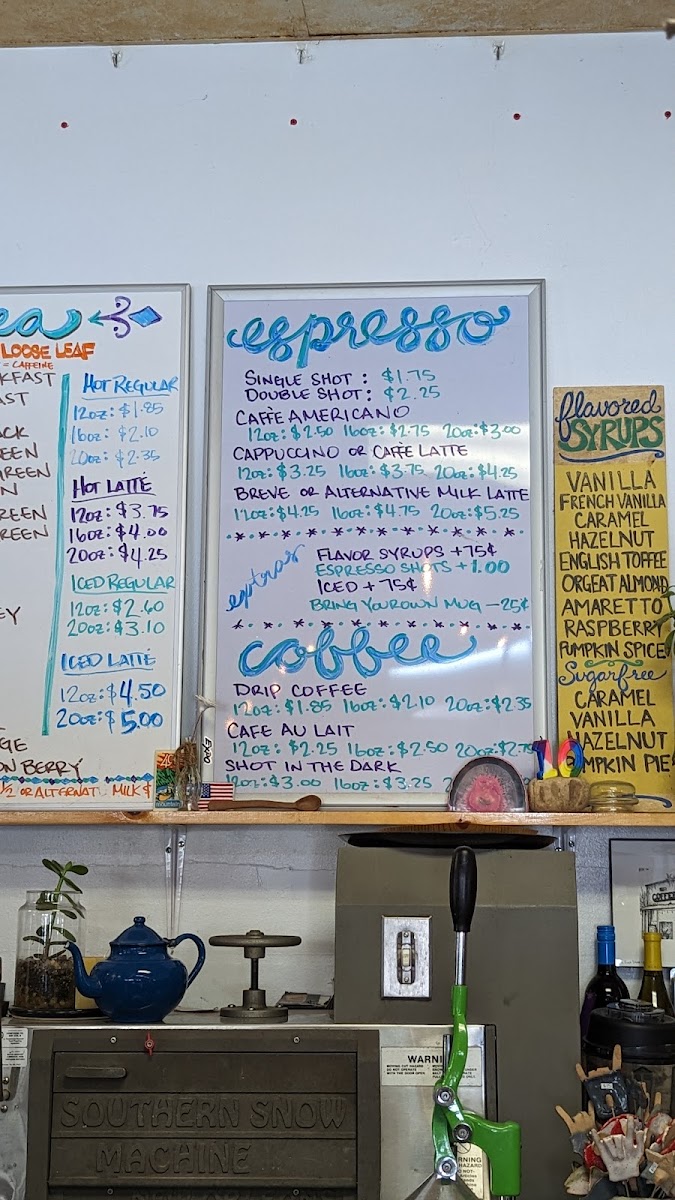 ea
LOOSE LEAF
= CAFFEINE
KFAST
AST
ACK
EEN
GREEN
N
REEN
GREEN
EY
GE
ON BERRY
1/2 OR ALTERNAT MILK
HOT REGULAR
12oz: $1.85
16oz: $2.10
20oz: $2.35
HOT LATTÉ
12oz: $3.75
16oz: $4.00
20oz: $4.25
ICED REGULAR
12oz: $2.60
20oz: $3.10
ICED LATTÉ
12oz: $4.50
20oz: $5.00
espresso
SINGLE SHOT: $1.75
DOUBLE SHOT: $2.25
CAFFÈ AMERICANO
12oz: $2.50 16oz: $2.75 20oz: $3.00
CAPPUCCINO OR CAFFÈ LATTE
12oz: $3.25 16oz: $3.75 20oz: $4.25
BREVE OR ALTERNATIVE MILK LATTE
12oz: $4.25 16oz: $4.75 20oz: $5.25
extras
FLAVOR SYRUPS +75¢
ESPRESSO SHOTS +1.00
ICED +75¢
BRING YOUR OWN MUG -25¢
coffee
DRIP COFFEE
12oz: $1.85 16oz: $2.10 20oz: $2.35
CAFE AU LAIT
12oz: $2.25 16oz: $2.50 20oz: $2.75
SHOT IN THE DARK
12oz: $3.00 16oz: $3.25 2
EXPO
flavored
SYRUPS
VANILLA
FRENCH VANILLA
CARAMEL
HAZELNUT
ENGLISH TOFFEE
ORGEAT ALMOND
AMARETTO
RASPBERRY
PUMPKIN SPICE
Sugarfree
CARAMEL
VANILLA
HAZELNUT
MPKIN PIE
10
WARNI
SOUTHERN SNOW
MACHINE